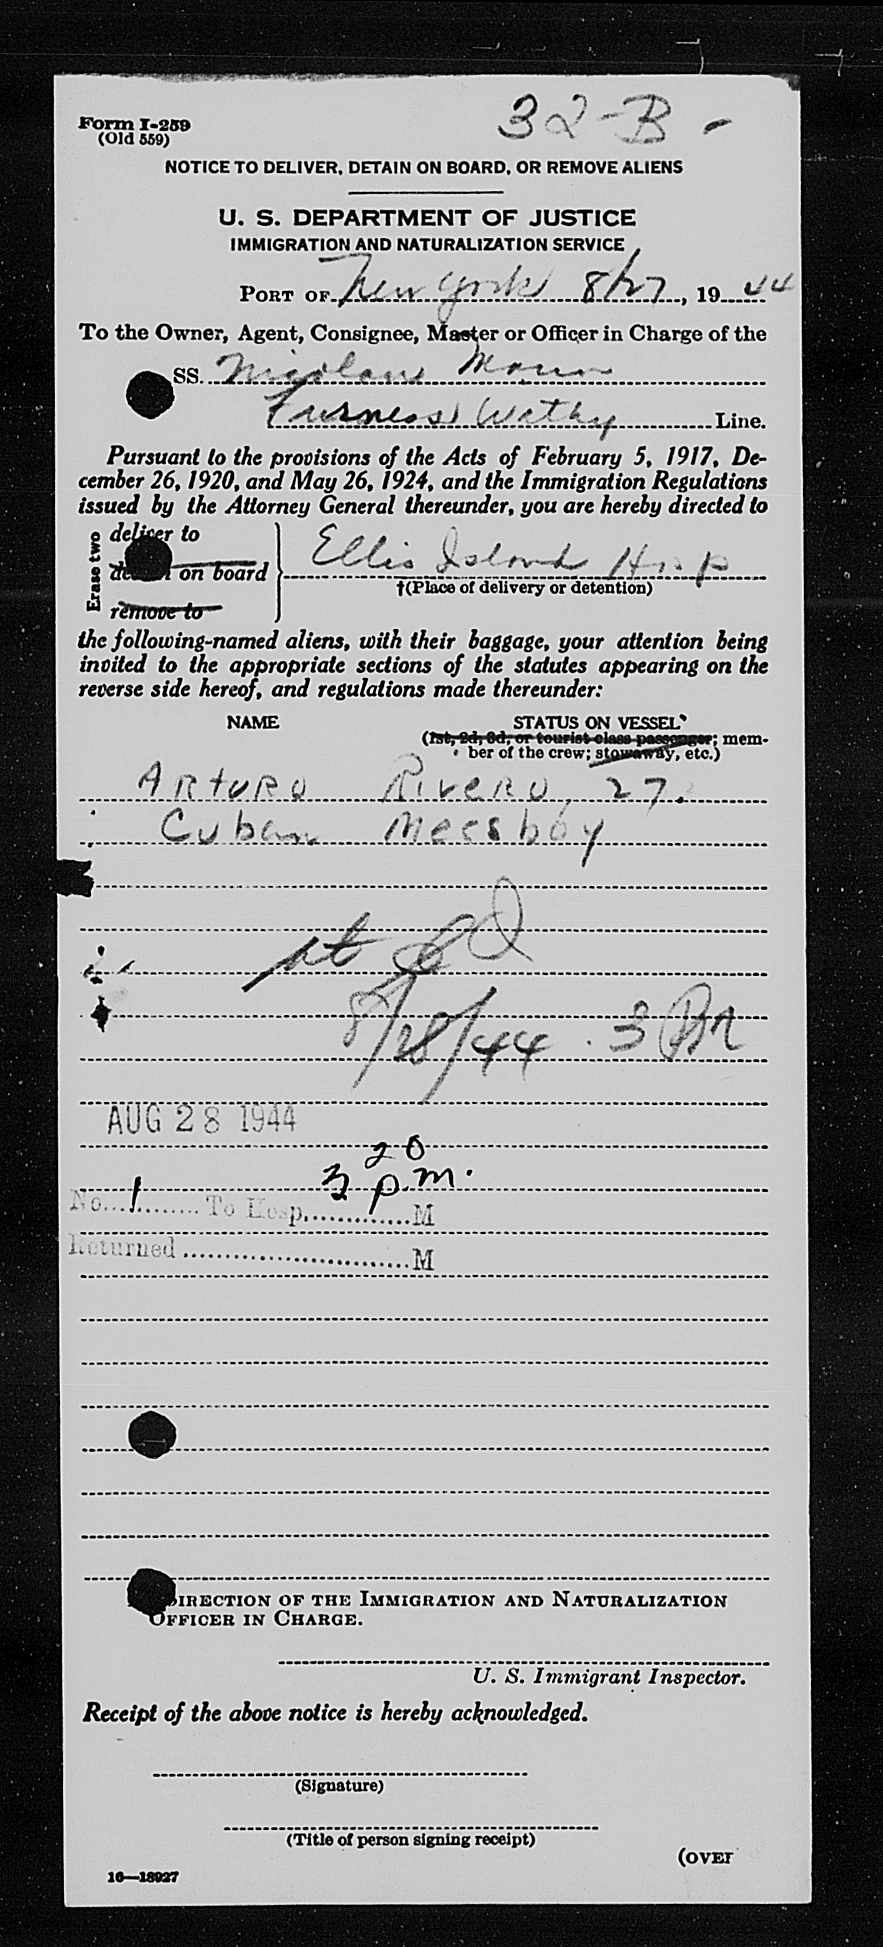 32-B-
Form I-259
(Old 559)
NOTICE TO DELIVER, DETAIN ON BOARD, OR REMOVE ALIENS
U. S. DEPARTMENT OF JUSTICE
IMMIGRATION AND NATURALIZATION SERVICE
PORT OF New York 8/27, 1944
To the Owner, Agent, Consignee, Master or Officer in Charge of the
SS.
Furness Withy Line.
Pursuant to the provisions of the Acts of February 5, 1917, De-
cember 26, 1920, and May 26, 1924, and the Immigration Regulations
issued by the Attorney General thereunder, you are hereby directed to
Erase two
deliver to
on board
remove to
Ellis Island Hosp
†(Place of delivery or detention)
the following-named aliens, with their baggage, your attention being
invited to the appropriate sections of the statutes appearing on the
reverse side hereof, and regulations made thereunder:
NAME STATUS ON VESSEL
(1st, 2d, 3d, or tourist class passenger; mem-
ber of the crew; stowaway, etc.)
Arturo Rivero, 27.
Cuban Messboy
8/28/44
AUG 28 1944
3 20 p.m.
No. 1 To Hosp. M
Returned M
DIRECTION OF THE IMMIGRATION AND NATURALIZATION
OFFICER IN CHARGE.
U. S. Immigrant Inspector.
Receipt of the above notice is hereby acknowledged.
(Signature)
(Title of person signing receipt)
(OVER
16—18927